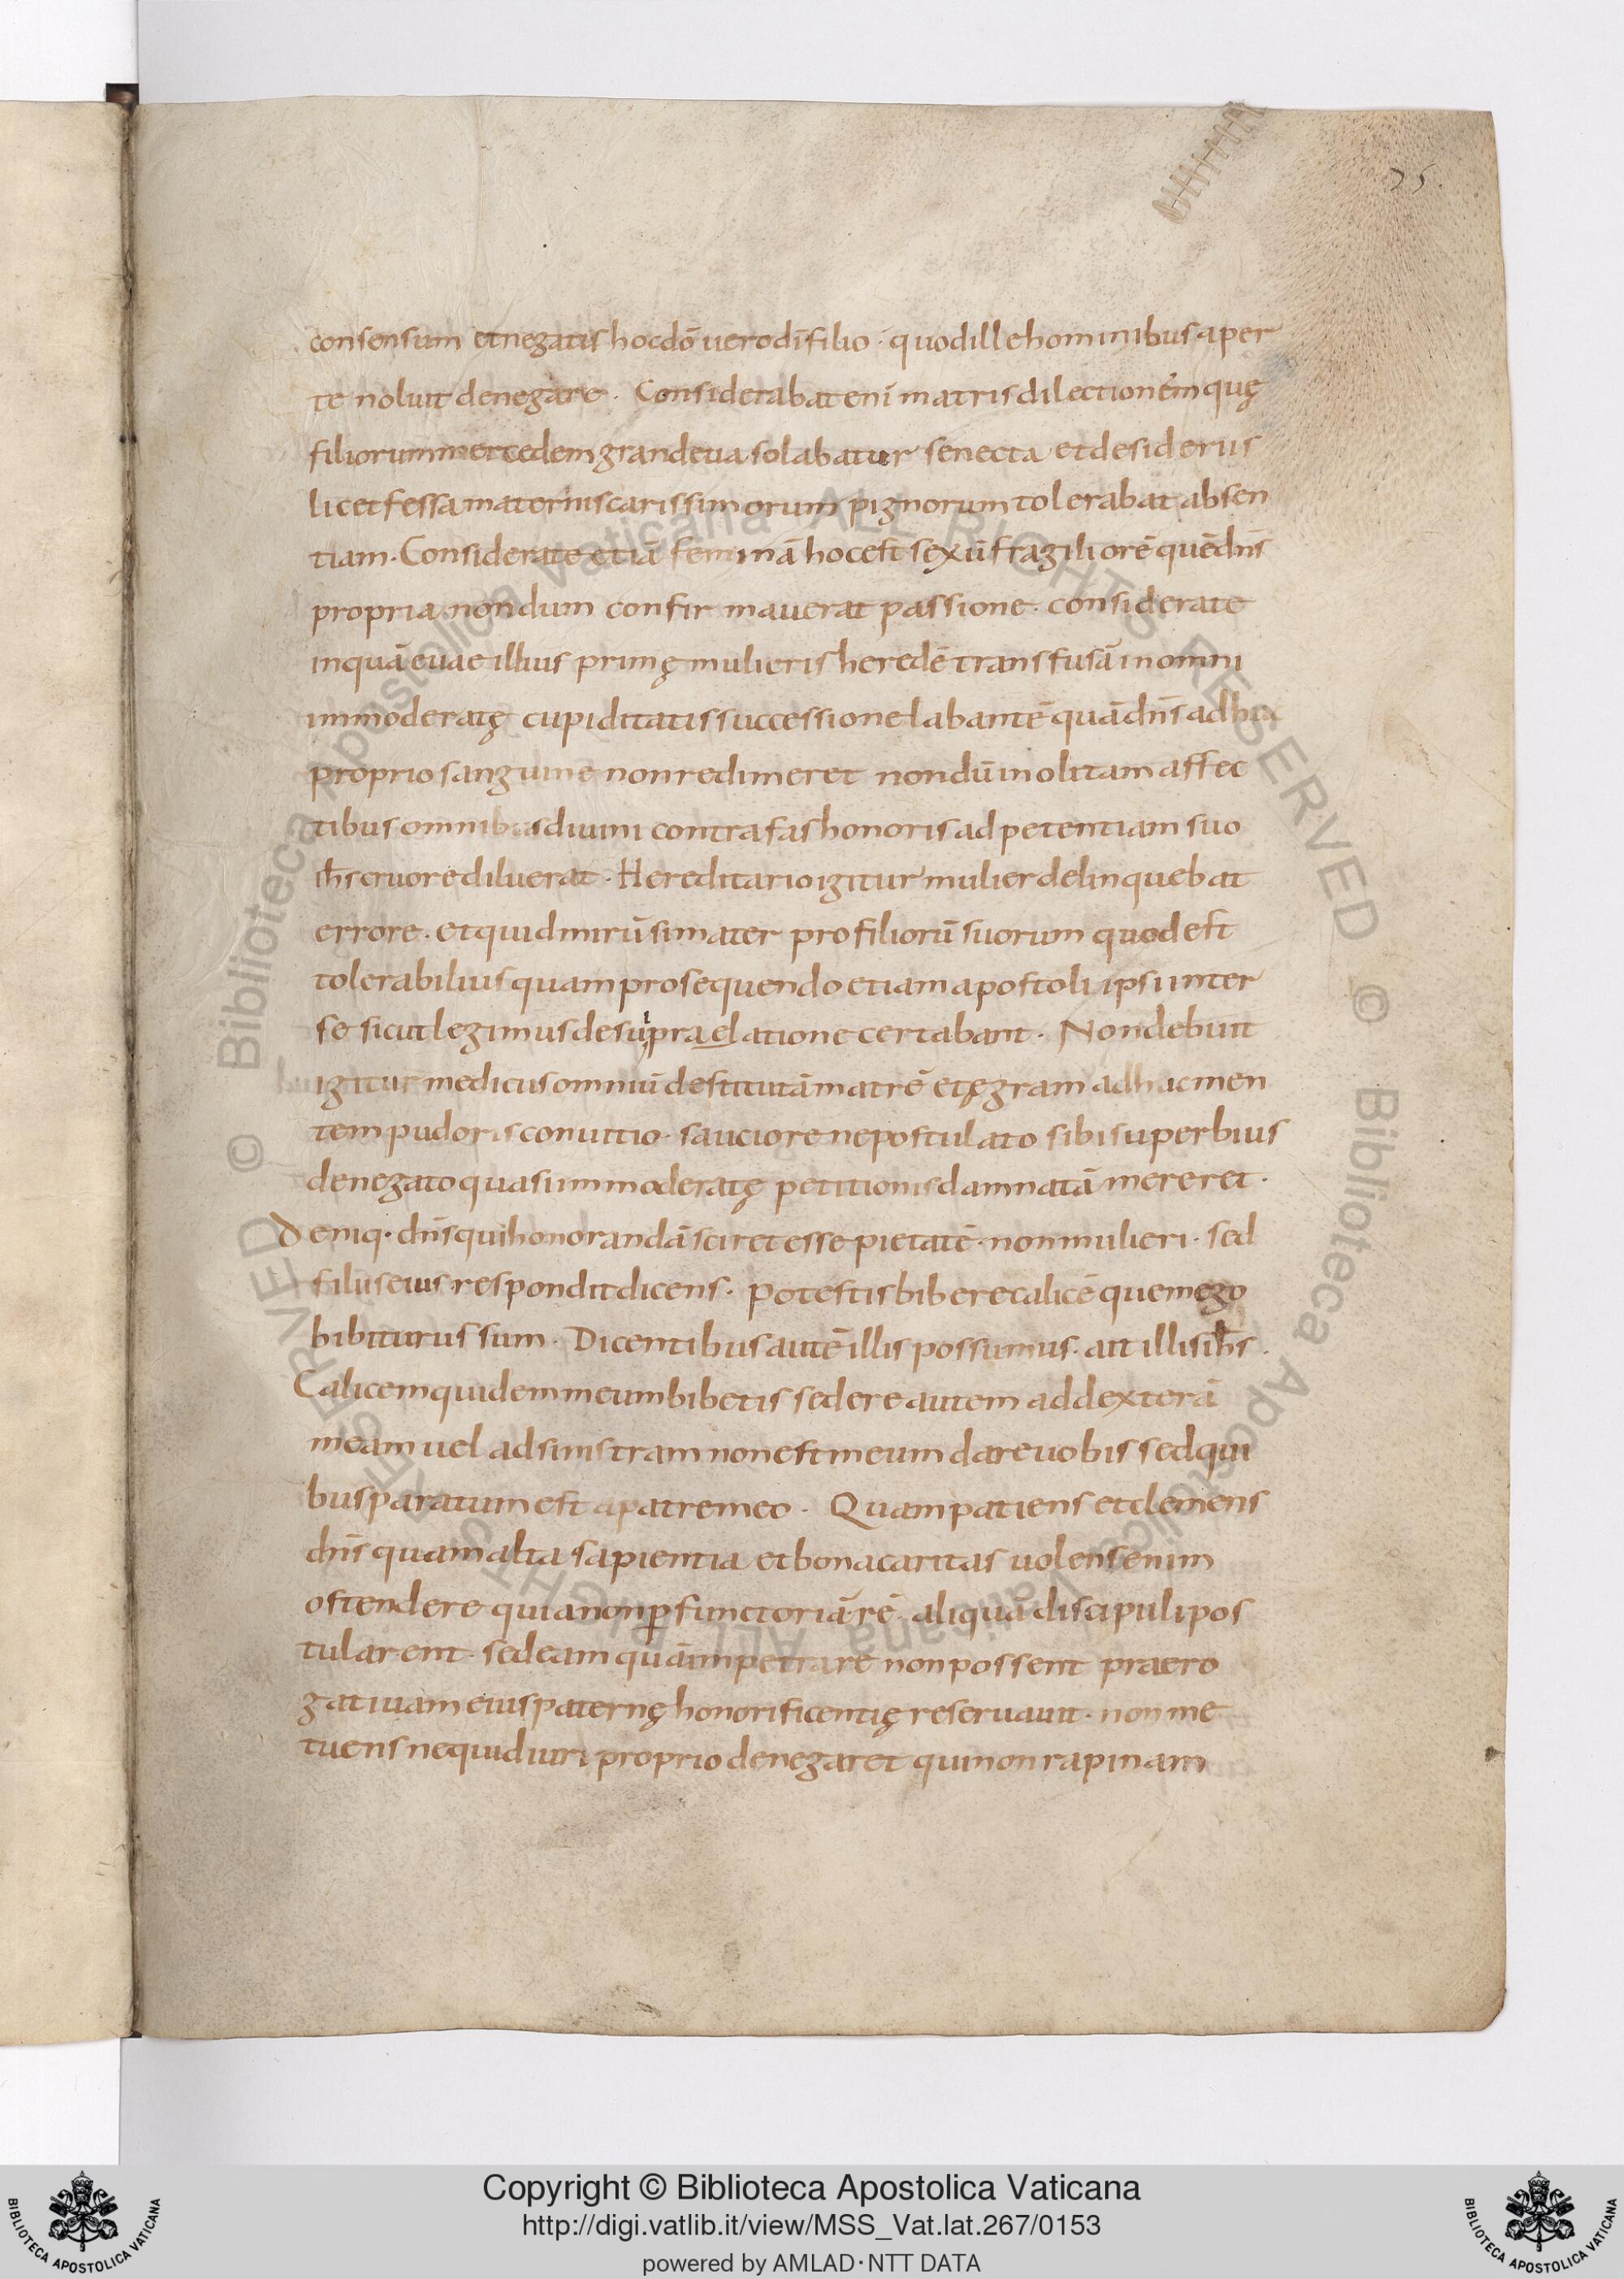 75.
consensum et negatis hoc dō uero dī filio · quod ille hominibus aper
te noluit denegare. Considerabat enī matris dilectionem quę
filiorum mercedem grandeua solabatur senecta et desideriis
licet fessa maternis carissimorum pignorum tolerabat absen
tiam. Considerate etiā feminā hoc est sexū fragiliorē quē dn̄s
propria nondum confirmauerat passione. considerate
inquā euae illius primę mulieris heredē transfusā in omni
immoderatę cupiditatis successione labantē quā dn̄s adhuc
proprio sanguine non redimeret nondū inolitam affec
tibus omnibus diuini contra fas honoris adpetentiam suo
ih̄s cruore diluerat. Hereditario igitur mulier delinquebat
errore. et quid mirū si mater pro filiorū suorum quod est
tolerabilius quam pro sequendo etiam apostoli ipsi inter
se sicut legimus de su,praelatione certabant. Non debuit
igitur medicus omniū destitutā matrē et ęgram adhuc men
tem pudoris conuitio. sauciore ne postulato sibi superbius
denegato quasi immoderatę petitionis damnatā mereret.
Deniq· dn̄s qui honorandā sciret esse pietatē. non mulieri. sed
filiis eius respondit dicens. Potestis bibere calicē quem ego
bibiturus sum. Dicentibus autē illis possumus. ait illis ih̄s.
Calicem quidem meum bibetis sedere autem ad dexterā
meam uel ad sinistram non est meum dare uobis sed qui
bus paratum est a patre meo. Quam patiens et clemens
dn̄s quam alta sapientia et bona caritas uolens enim
ostendere quia non ꝑfunctoriā rē aliquā discipuli pos
tularent. sed eam quā impetrare non possent praero
gatiuam eius paternę honorificentię reseruauit. non me
tuens ne quid iuri proprio denegaret qui non rapinam
© Biblioteca Apostolica Vaticana ALL RIGHTS RESERVED © Biblioteca Apostolica Vaticana ALL RIGHTS RESERVED
BIBLIOTECA APOSTOLICA VATICANA
Copyright © Biblioteca Apostolica Vaticana
http://digi.vatlib.it/view/MSS_Vat.lat.267/0153
powered by AMLAD·NTT DATA
BIBLIOTECA APOSTOLICA VATICANA